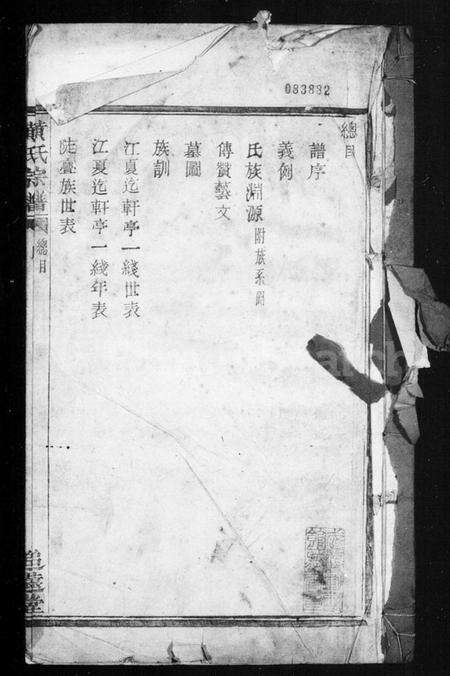 083882
總目
譜序
義例
氏族淵源附族系圖
傳贊藝文
墓圖
族訓
江夏迄軒亭一綫世表
江夏迄軒亭一綫年表
族世表
黃氏宗譜
總目
追遠堂